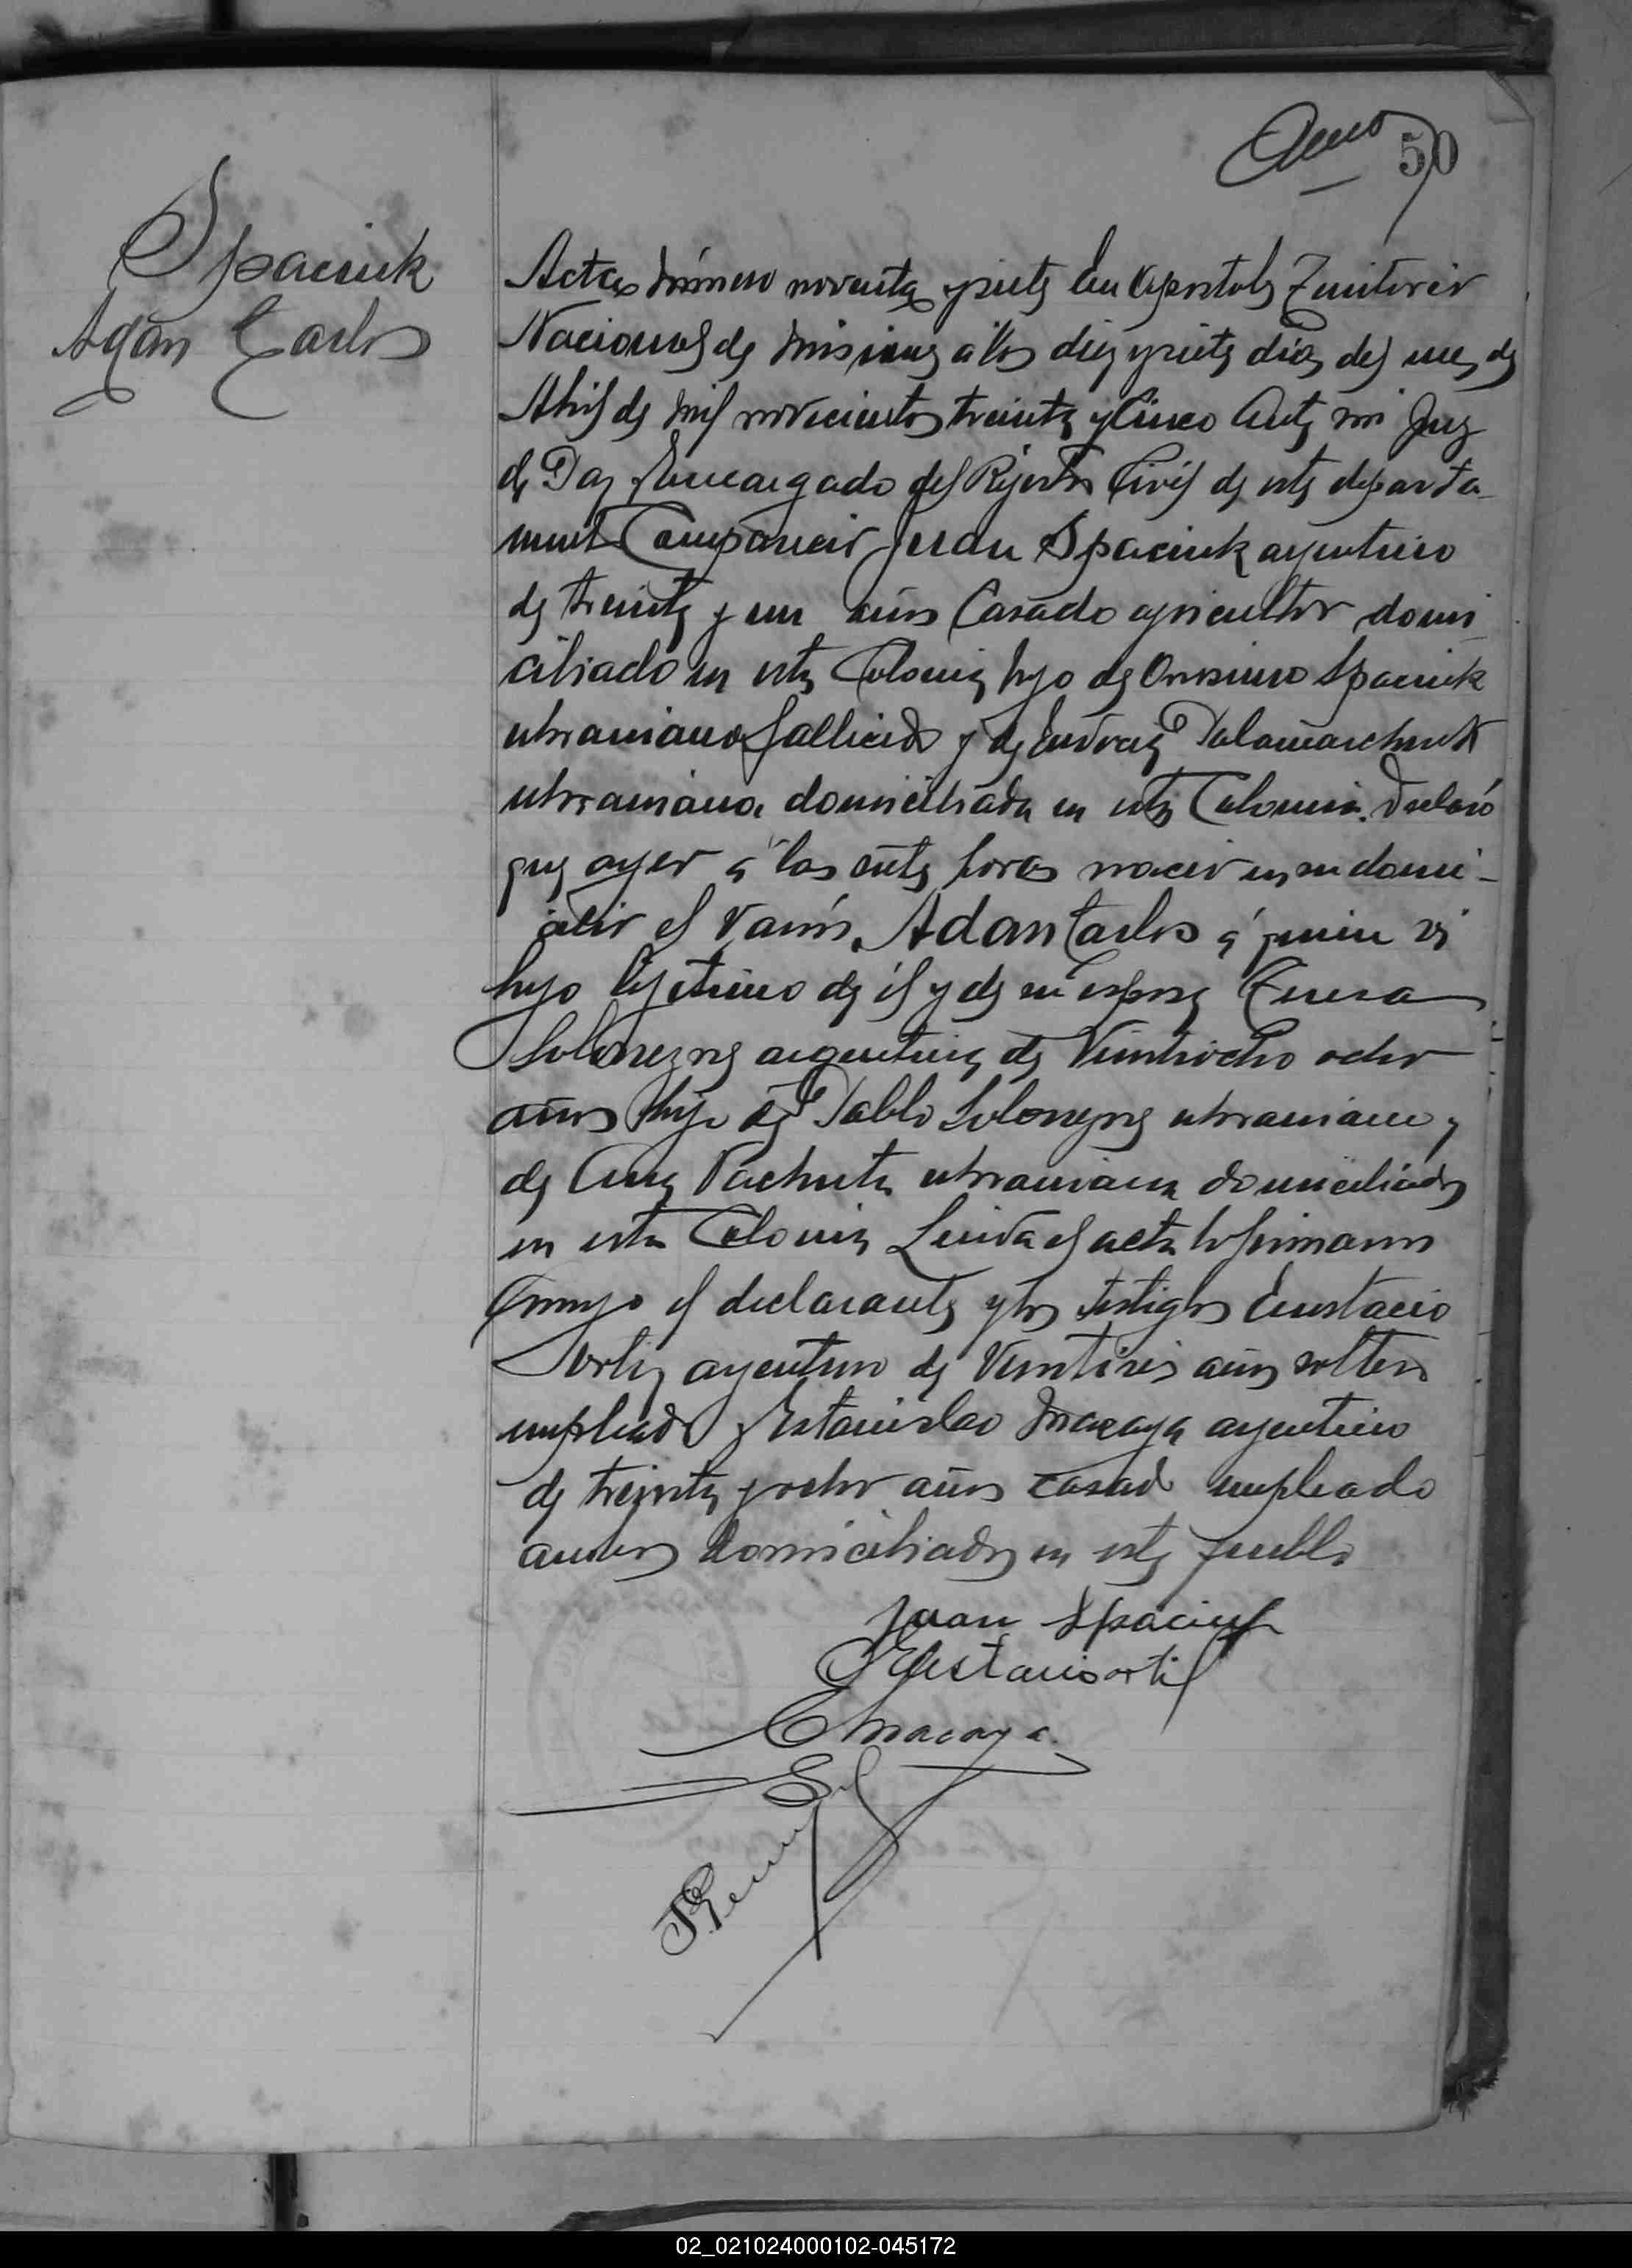 50
Spaciuk
Adan Carlos
Acta número noventa y siete En Apostoles Territorio
Nacional de Misiones a los diez y siete dias del mes de
Abril de mil novecientos treinta y cinco Ante mi Juez
de Paz Encargado del Rejistro Civil de este departa
mento Comparecio Juan Spaciuk argentino
de treinta y un años Casado agricultor domi
ciliado en esta Colonia hijo de Onisimo Spaciuk
ukraniano fallecido y de Palamarchuk
ukraniana domiciliada en esta Colonia. Declaró
que ayer á las siete horas nacio en su domi-
cilio el varón Adan Carlos á quien vi
hijo lejitimo de él y de su esposa Teresa
argentina de Veintiocho ocho
años hija de Pablo ukraniano y
de Ana ukraniana domiciliados
en esta Colonia Leida el acta la firmaron
Conmigo el declarante y los testigos Eustacio
Ortiz argentino de Veintiseis años soltero
empleado y Estanislao Macaya argentino
de treinta y ocho años casado empleado
ambos domiciliados en este pueblo
Juan Spaciuk
Eustacio Ortiz
E Macaya.
02_021024000102-045172